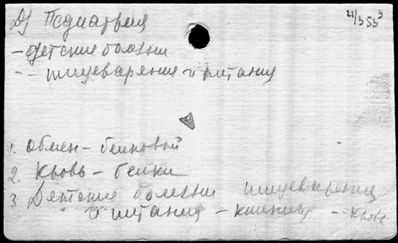 Д) Педиатрия 21/3 553
- детские болезни
- - пищеварения и питания
1. Обмен - белковый
2. Кровь - белки
3 Детские болезни пищеварения
и питания - - кровь